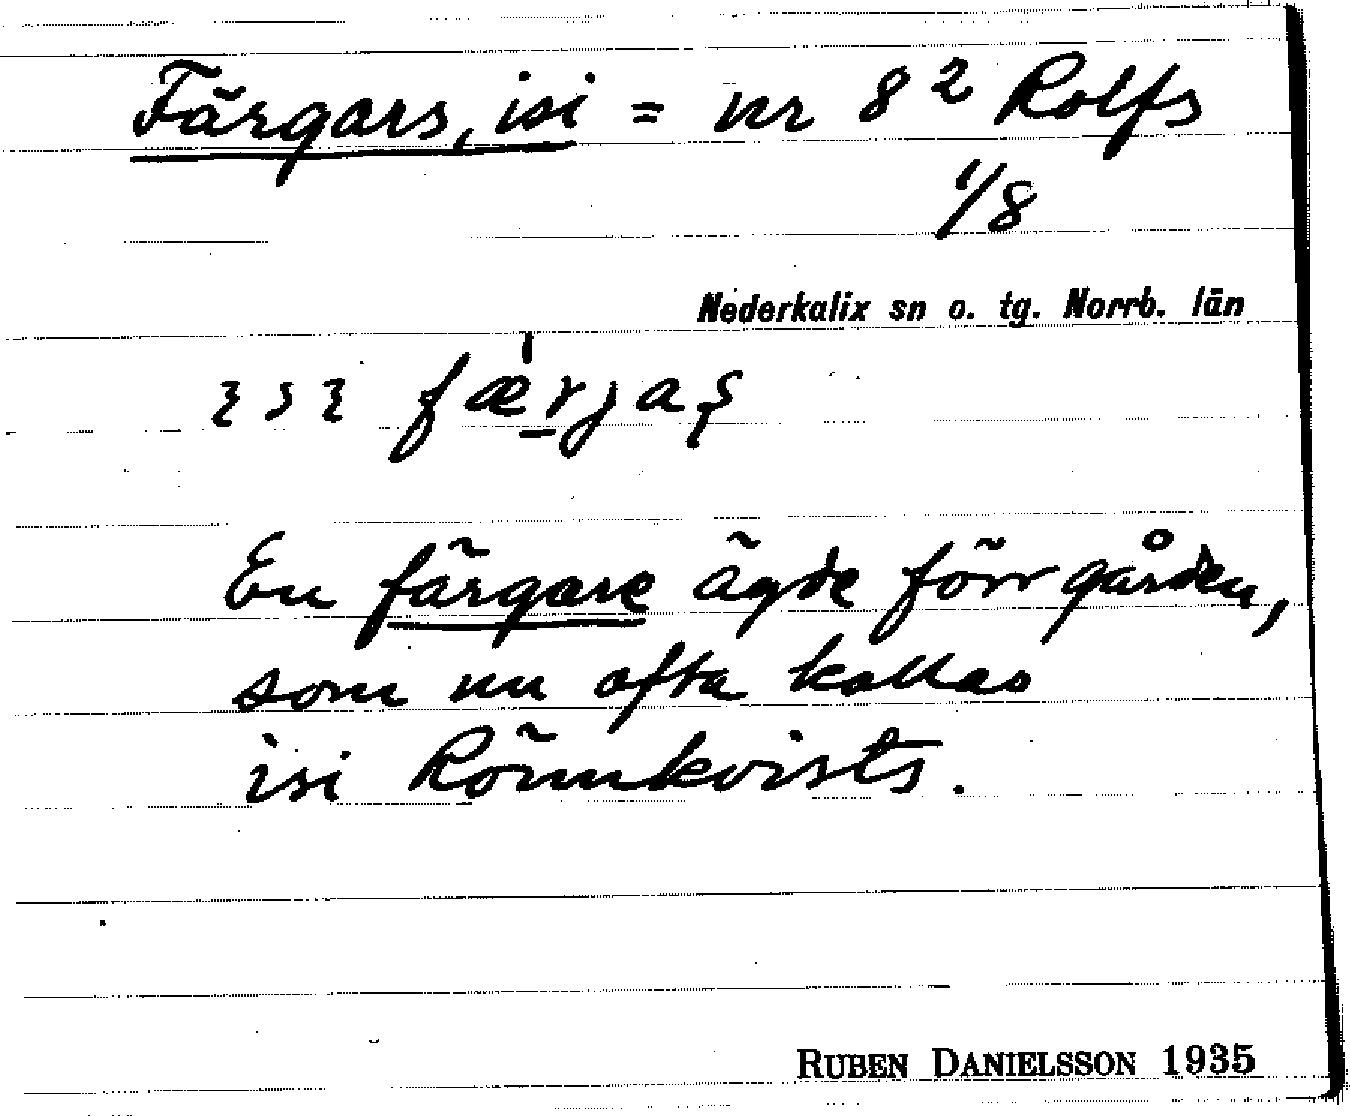 Färgars, isi = nr 8² Rolfs
1/8
Nederkalix sn o. tg. Norrb. län
ɩsɩ fæ̀rjaʂ
En färgare ägde förr gården,
som nu ofta kallas
isi Rönnkvists.
RUBEN DANIELSSON 1935